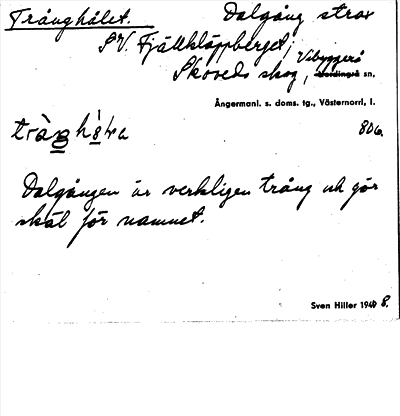 Trånghålet. Dalgång strax
SV. Fjällkläppberget,
Skoveds skog, Vibyggerå
Nordingrå sn,
Ångermanl. s. doms. tg., Västernorrl. l.
806.
Dalgången är verkligen trång och gör
skäl för namnet.
Sven Hiller 1948.